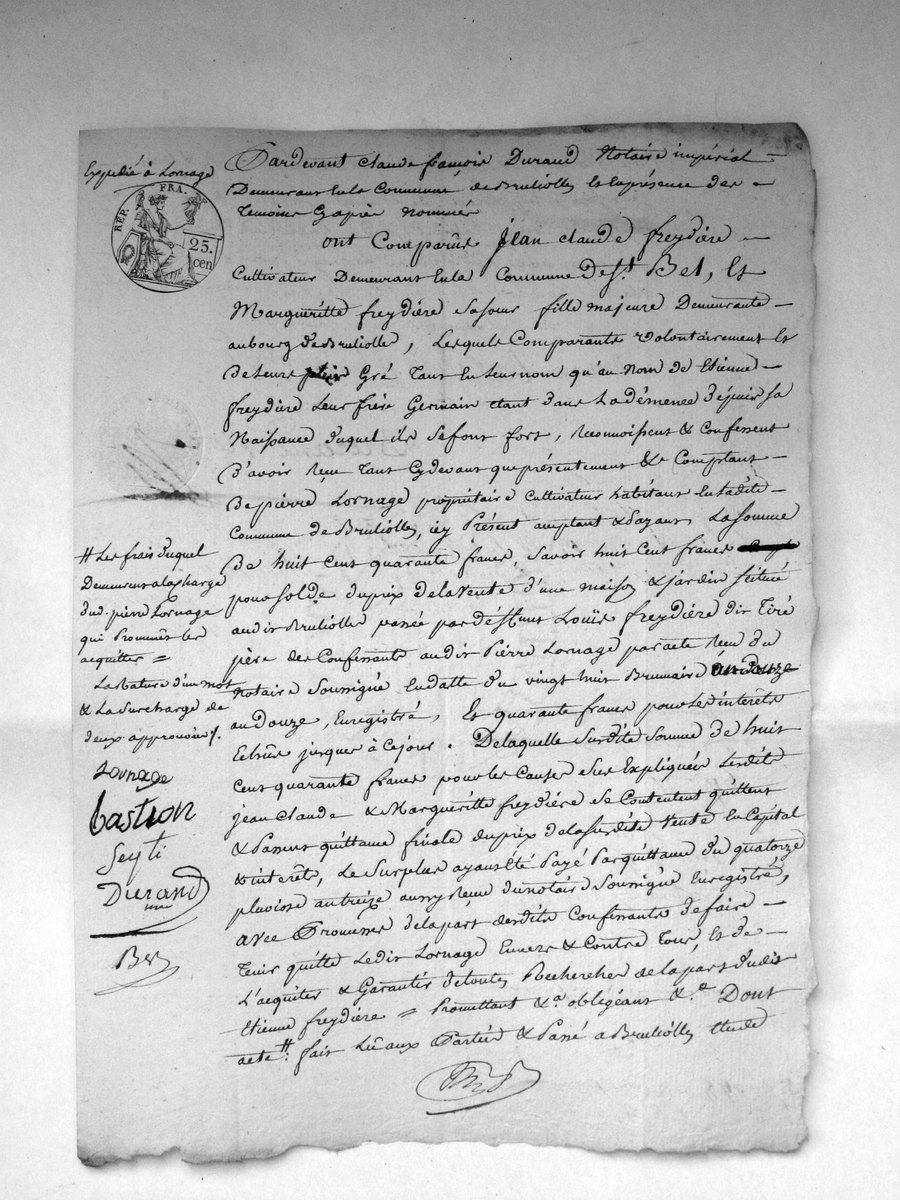 Expedié à Lornage
RÉP. FRA.
25.
cen
Pardevant claude françois Durand Notaire impérial
Demeurant En la Commune de Brulliolles Et En présence des
Temoins Cy après nommés
ont Comparûs jean claude freydiere
Cultivateur Demeurant En la Commune de st. Bel, Et
Margueritte freydiere sa soeur fille majeure Demeurante
au bourg de Brulliolle, Lesquels Comparants volontairement Et
De Leurs plein Gré Tant En Leur nom qu'au Nom de Etienne
freydiere Leur frère Germain etant dans La démence Dépuis sa
Naissance duquel ils se font fort, Reconnoissent & Confessent
D'avoir Reçu Tant Cydevant que présentement & Comptant
De pierre Lornage propriétaire Cultivateur habitant En Ladite
Commune de Brulliolles, icy Présent acceptant & Payant La somme
De huit Cent quarante francs, savoir huit Cent francs
pour solde du prix de la vente d'une maison & jardin scitués
audit Brulliolle passée par défunt Louis freydiere dit Tiré
père des Confessants audit Pierre Lornage par acte Reçu du
Notaire Soussigné En datte du vingt huit Brumaire
an Douze, Enregistré, Et quarante francs pour Les interêts
Echus jusques à Ce jour. De laquelle Susdite Somme de huit
Cent quarante francs pour les Causes Sus Expliquées Lesdits
jean Claude & Margueritte freydiere se Contentent quittent
& Passent quittance finale du prix de la susdite Vente En Capital
& interêts, Le Surplus ayant Eté Payé Par quittance du quatorze
pluviose an treize aussy Reçue du notaire Soussigné Enregistré,
avec Promesse de la part desdits Confessants de faire
Tenir quitte Ledit Lornage Envers & Contre Tous, Et de
L'acquiter & Garantir de toutes Recherches de la part dudit
Etienne freydiere = Promettant &a. obligeant &.a Dont
acte #: fait Lû aux Parties & Passé a Brulliolles Etude
# Les frais duquel
Demeurent a la charge
dud. pierre Lornage
qui Promet les
acquitter =
La Rature d'un mot
& La Surcharge de
deux approuvés /.
Lornage
Bastion
Seyti
Durand